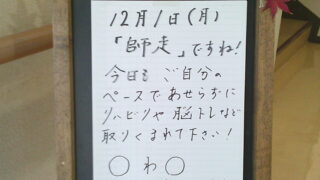 12月1日(月)
「師走」ですね!
今日も ご自分の
ペースであせらずに
リハビリや脳トレなど
取りくまれて下さい!
○ わ ○